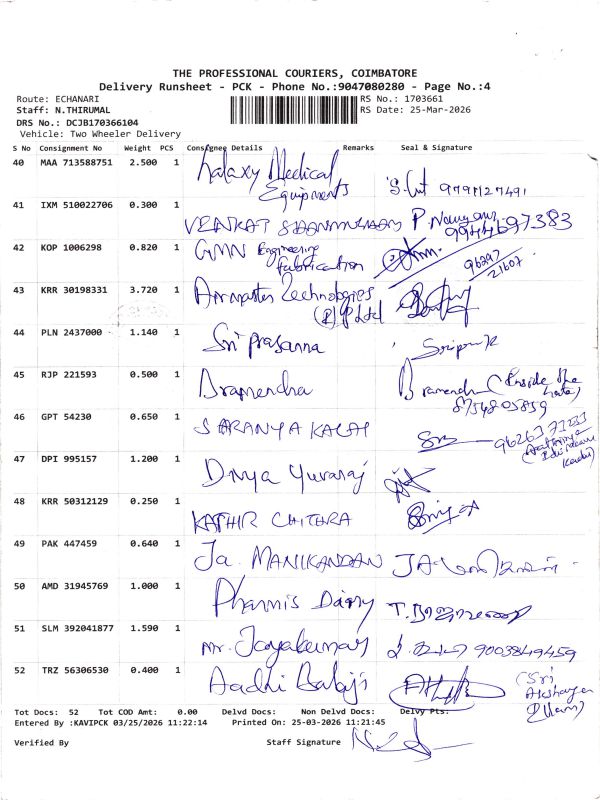 THE PROFESSIONAL COURIERS, COIMBATORE
Delivery Runsheet - PCK - Phone No.:9047080280 - Page No.:4
Route: ECHANARI
RS No.: 1703661
Staff: N.THIRUMAL
RS Date: 25-Mar-2026
DRS No.: DCJB170366104
Vehicle: Two Wheeler Delivery
S No Consignment No Weight PCS Consignee Details Remarks Seal & Signature
40 MAA 713588751 2.500 1 Galaxy Medical
Equipments 9791127491
41 IXM 510022706 0.300 1
VENKAT SHANMUGAM 9944697383
42 KOP 1006298 0.820 1 GMN Engineering
fabrication 96297
21607
43 KRR 30198331 3.720 1 Airmaster Technologies
(P) Ltd
44 PLN 2437000 1.140 1 Sri Prasanna
45 RJP 221593 0.500 1 Bramendra Bramendra (Inside the
Gate)
8754803859
46 GPT 54230 0.650 1 SARANYA KALAI
47 DPI 995157 1.200 1 Divya Yuvaraj
48 KRR 50312129 0.250 1
KATHIR CHITHRA
49 PAK 447459 0.640 1 Ja. MANIKANDAN
50 AMD 31945769 1.000 1 Pharmis Dairy
51 SLM 392041877 1.590 1 Mr. Jayakumar 9003849459
52 TRZ 56306530 0.400 1 Aadhi Balaji (Sri
Akshaya
Tot Docs: 52 Tot COD Amt: 0.00 Delvd Docs: Non Delvd Docs: Delvy Pts:
Entered By :KAVIPCK 03/25/2026 11:22:14 Printed On: 25-03-2026 11:21:45
Verified By Staff Signature